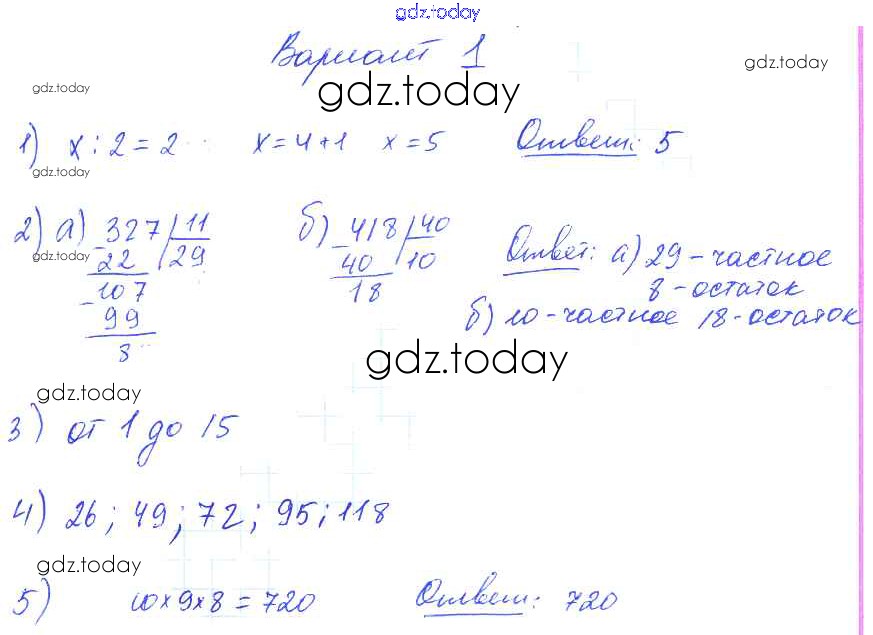 gdz.today
Вариант 1
gdz.today
gdz.today
gdz.today
1) x : 2 = 2 x = 4 + 1 x = 5 Ответ: 5
gdz.today
2) а) 327 | 11 б) 418 | 40 Ответ: а) 29 - частное
- 22 | 29 - 40 | 10 8 - остаток
gdz.today
- 107 18 б) 10 - частное 18 - остаток
99
8
gdz.today
gdz.today
3) от 1 до 15
4) 26; 49; 72; 95; 118
gdz.today
5) 10 × 9 × 8 = 720 Ответ: 720